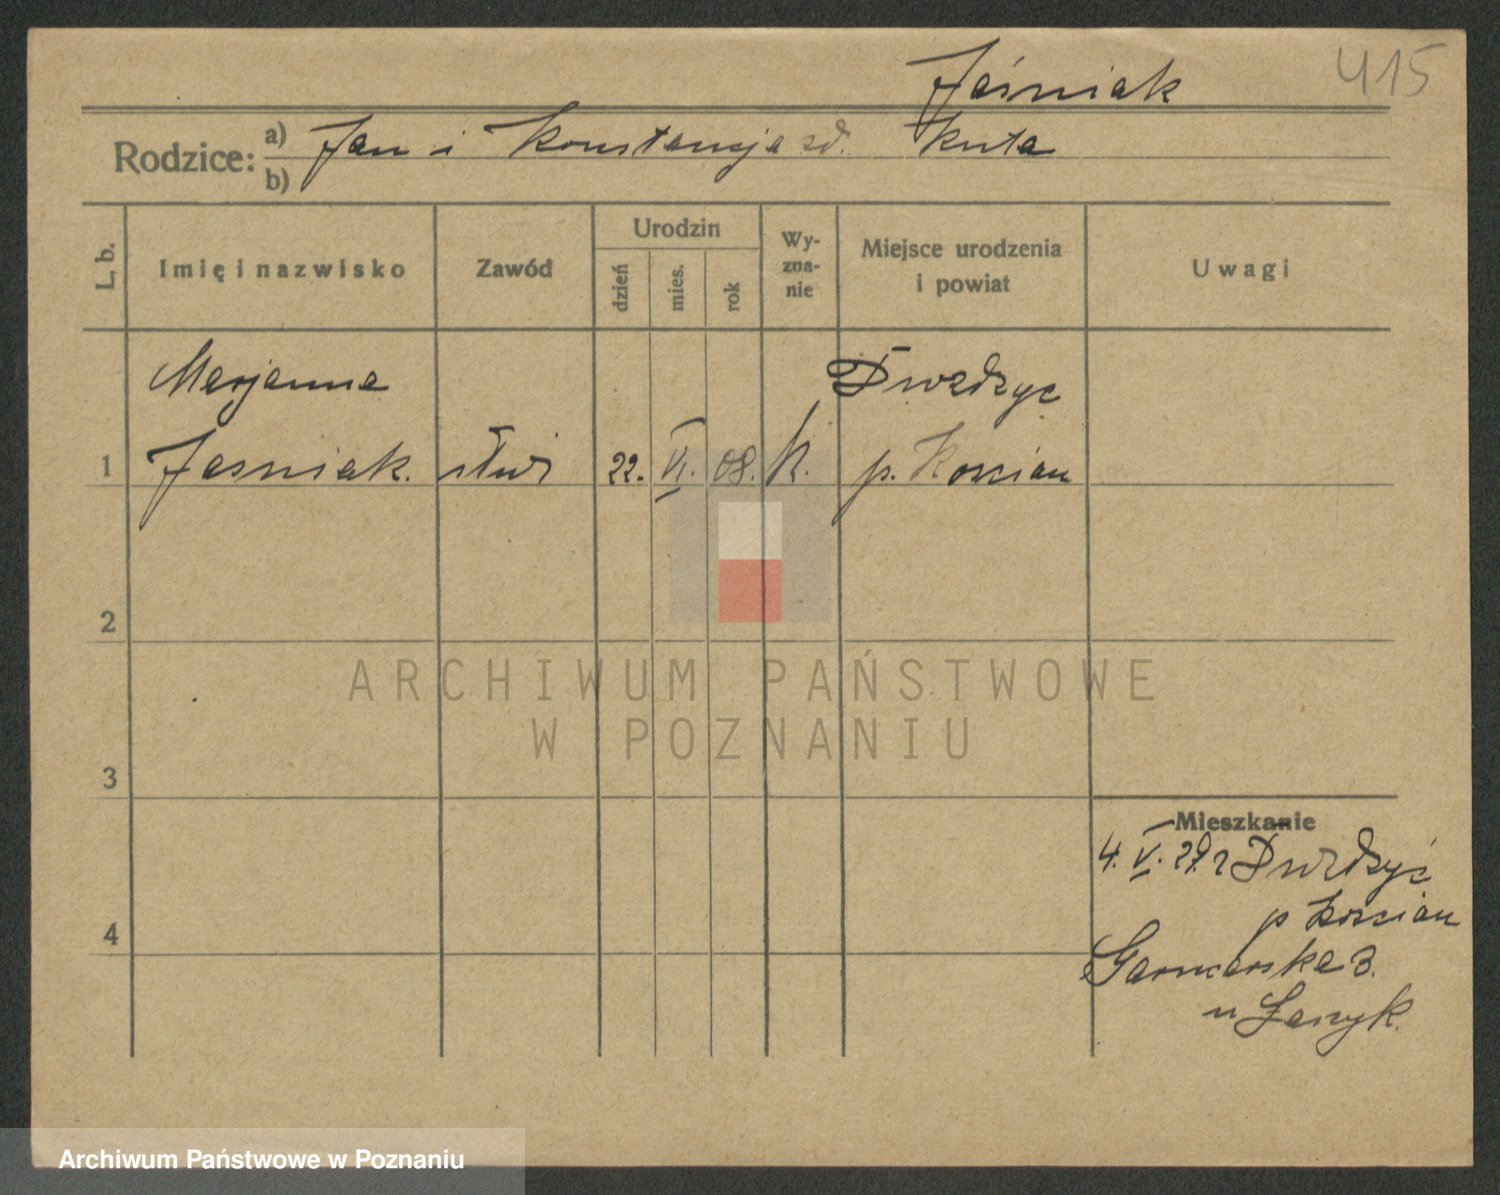 415
Jaśniak
Rodzice: a) Jan i Konstancja zd. Kuta
b)
L. b. Imię i nazwisko Zawód Urodzin dzień mies. rok Wy-zna-nie Miejsce urodzenia i powiat Uwagi
Marjanna
1 Jasniak. 22. VI. 08. K. p. Koscian
2
3
4
Mieszkanie
4. V. 29.
p Koscian
Garncarska 3.
u
ARCHIWUM PAŃSTWOWE
W POZNANIU
Archiwum Państwowe w Poznaniu